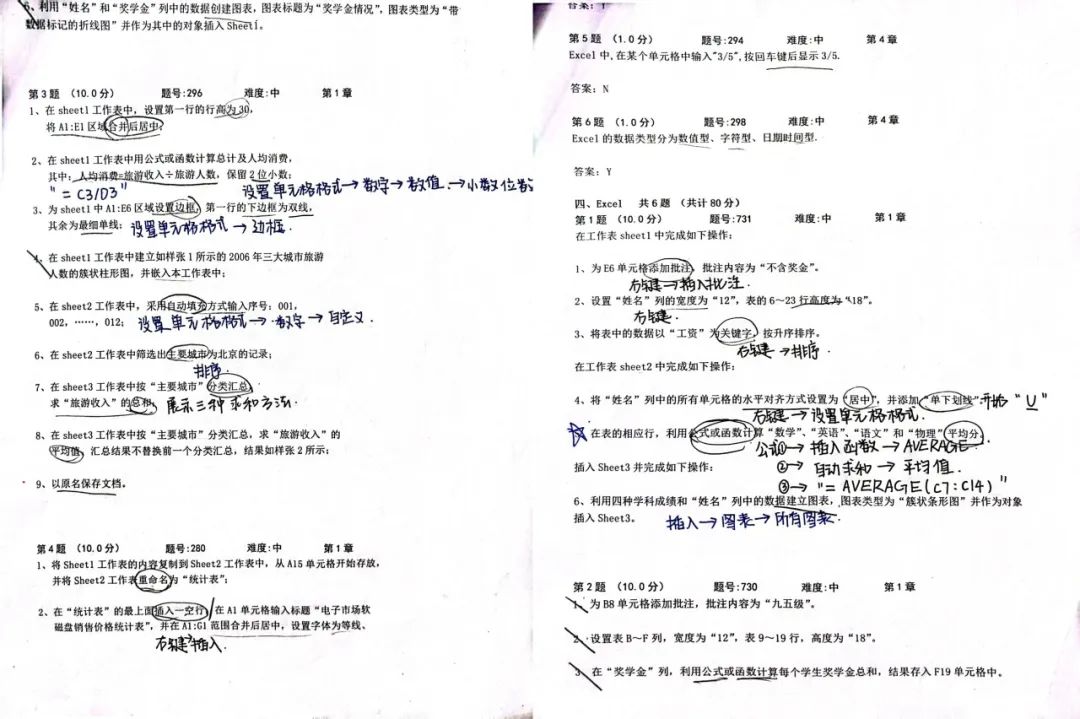 5、利用“姓名”和“奖学金”列中的数据创建图表，图表标题为“奖学金情况”，图表类型为“带
数据标记的折线图”并作为其中的对象插入 Sheet1。
第3题 （10.0分） 题号:296 难度:中 第1章
1、在 sheet1 工作表中，设置第一行的行高为 30，
将 A1:E1 区域合并后居中；
2、在 sheet1 工作表中用公式或函数计算总计及人均消费，
其中：人均消费=旅游收入÷旅游人数，保留 2 位小数；
"= C3/D3" 设置单元格格式→数字→数值→小数位数
3、为 sheet1 中 A1:E6 区域设置边框，第一行的下边框为双线，
其余为最细单线； 设置单元格格式→边框.
4、在 sheet1 工作表中建立如样张 1 所示的 2006 年三大城市旅游
人数的簇状柱形图，并嵌入本工作表中；
5、在 sheet2 工作表中，采用自动填充方式输入序号：001，
002，……，012； 设置单元格格式→数字→自定义.
6、在 sheet2 工作表中筛选出主要城市为北京的记录；
排序.
7、在 sheet3 工作表中按“主要城市”分类汇总，
求“旅游收入”的总和； 展示三种求和方法.
8、在 sheet3 工作表中按“主要城市”分类汇总，求“旅游收入”的
平均值，汇总结果不替换前一个分类汇总，结果如样张 2 所示；
9、以原名保存文档。
第4题 （10.0分） 题号:280 难度:中 第1章
1、将 Sheet1 工作表的内容复制到 Sheet2 工作表中，从 A15 单元格开始存放，
并将 Sheet2 工作表重命名为“统计表”；
2、在“统计表”的最上面插入一空行，在 A1 单元格输入标题“电子市场软
磁盘销售价格统计表”，并在 A1:G1 范围合并后居中，设置字体为等线、
右键→插入.
答案：Y
第5题 （1.0分） 题号:294 难度:中 第4章
Excel 中,在某个单元格中输入"3/5",按回车键后显示 3/5.
答案：N
第6题 （1.0分） 题号:298 难度:中 第4章
Excel 的数据类型分为数值型、字符型、日期时间型.
答案：Y
四、Excel 共6题 （共计80分）
第1题 （10.0分） 题号:731 难度:中 第1章
在工作表 sheet1 中完成如下操作：
1、为 E6 单元格添加批注，批注内容为“不含奖金”。
右键→插入批注.
2、设置“姓名”列的宽度为“12”，表的 6～23 行高度为“18”。
右键.
3、将表中的数据以“工资”为关键字，按升序排序。
右键→排序.
在工作表 sheet2 中完成如下操作：
4、将“姓名”列中的所有单元格的水平对齐方式设置为“居中”，并添加“单下划线”。开始“U”
右键→设置单元格格式.
在表的相应行，利用公式或函数计算“数学”、“英语”、“语文”和“物理”平均分。
公式①→插入函数→AVERAGE
插入 Sheet3 并完成如下操作： ②→自动求和→平均值.
③→"= AVERAGE(C7:C14)"
6、利用四种学科成绩和“姓名”列中的数据建立图表，图表类型为“簇状条形图”并作为对象
插入 Sheet3。 插入→图表→所有图表.
第2题 （10.0分） 题号:730 难度:中 第1章
1、为 B8 单元格添加批注，批注内容为“九五级”。
2、设置表 B～F 列，宽度为“12”，表 9～19 行，高度为“18”。
3、在“奖学金”列，利用公式或函数计算每个学生奖学金总和，结果存入 F19 单元格中。